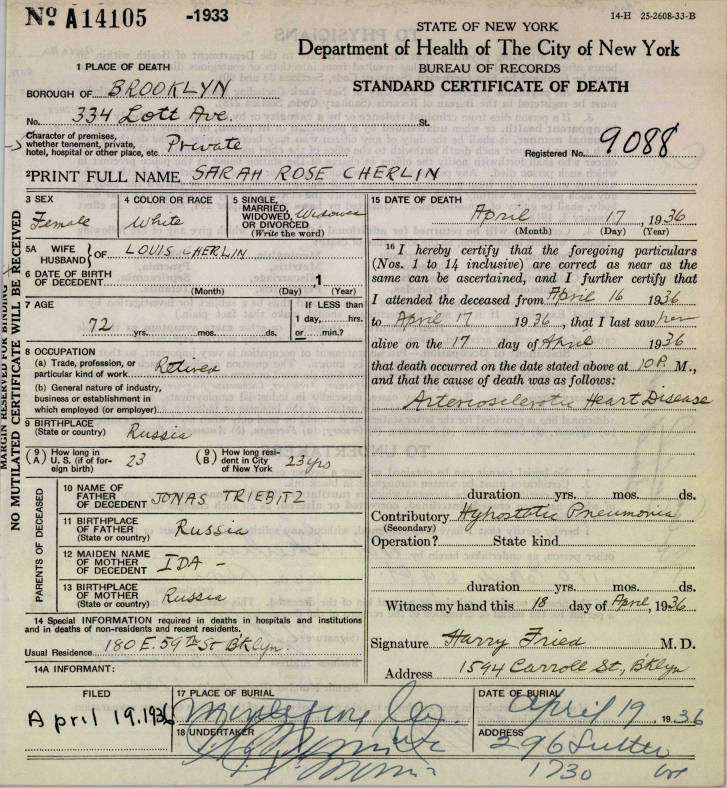 Nº A14105 -1933
14-H 25-2608-33-B
STATE OF NEW YORK
Department of Health of The City of New York
BUREAU OF RECORDS
STANDARD CERTIFICATE OF DEATH
1 PLACE OF DEATH
BOROUGH OF BROOKLYN
No. 334 Lott Ave. St.
Character of premises,
whether tenement, private,
hotel, hospital or other place, etc. Private
Registered No. 9088
2 PRINT FULL NAME SARAH ROSE CHERLIN
MARGIN RESERVED FOR BINDING
NO MUTILATED CERTIFICATE WILL BE RECEIVED
3 SEX
Female
4 COLOR OR RACE
White
5 SINGLE,
MARRIED,
WIDOWED,
OR DIVORCED
(Write the word)
Widowed
5A WIFE
HUSBAND } OF LOUIS CHERLIN
6 DATE OF BIRTH
OF DECEDENT , 1
(Month) (Day) (Year)
7 AGE
72 yrs. mos. ds.
If LESS than
1 day, hrs.
or min.?
8 OCCUPATION
(a) Trade, profession, or
particular kind of work Retired
(b) General nature of industry,
business or establishment in
which employed (or employer)
9 BIRTHPLACE
(State or country) Russia
(9 A) How long in
U. S. (if of for-
eign birth) 23
(9 B) How long resi-
dent in City
of New York 23 yrs
PARENTS OF DECEASED
10 NAME OF
FATHER
OF DECEDENT JONAS TRIEBITZ
11 BIRTHPLACE
OF FATHER
(State or country) Russia
12 MAIDEN NAME
OF MOTHER
OF DECEDENT IDA -
13 BIRTHPLACE
OF MOTHER
(State or country) Russia
14 Special INFORMATION required in deaths in hospitals and institutions
and in deaths of non-residents and recent residents.
Usual Residence 180 E. 59th St B'klyn.
14A INFORMANT:
15 DATE OF DEATH
April 17, 1936
(Month) (Day) (Year)
16 I hereby certify that the foregoing particulars
(Nos. 1 to 14 inclusive) are correct as near as the
same can be ascertained, and I further certify that
I attended the deceased from April 16 1936
to April 17 1936, that I last saw her
alive on the 17 day of April 1936
that death occurred on the date stated above at 10 P. M.,
and that the cause of death was as follows:
Arteriosclerotic Heart Disease
duration yrs. mos. ds.
Contributory Hypostatic Pneumonia
(Secondary)
Operation? State kind
duration yrs. mos. ds.
Witness my hand this 18 day of April, 1936
Signature Harry Fried M. D.
Address 1594 Carroll St., B'klyn
FILED
April 19, 1936
17 PLACE OF BURIAL
DATE OF BURIAL
April 19, 1936
18 UNDERTAKER
ADDRESS
296 Sutter
1730